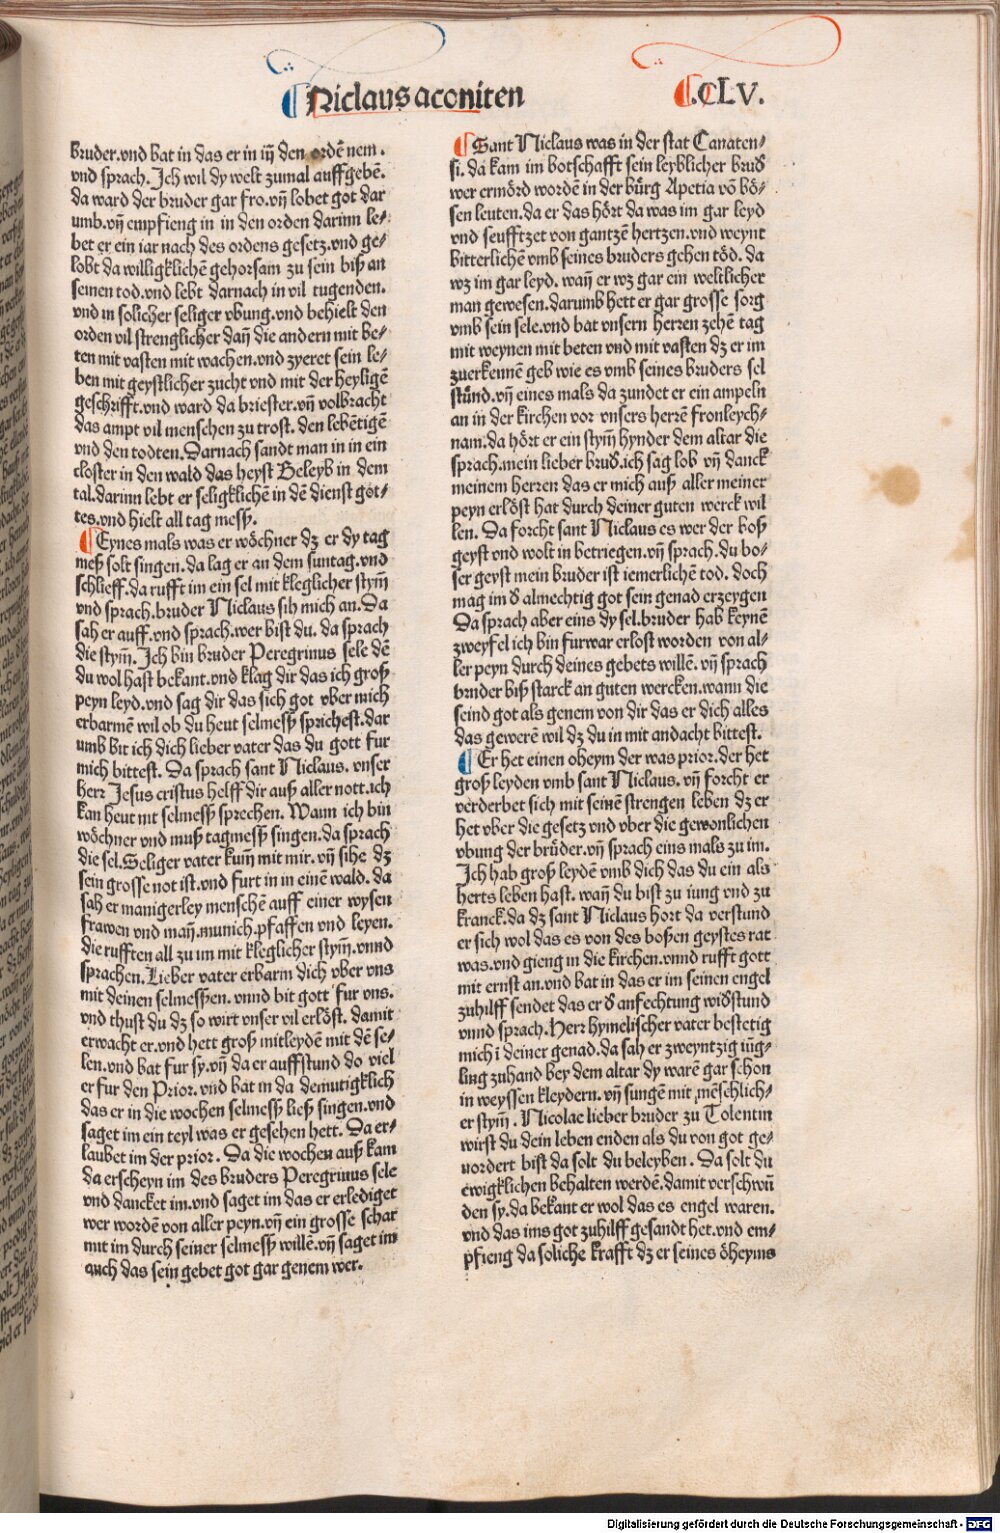 Niclaus aconiten
.CLV.
bruder.vnd bat in das er in iñ den ordē nem.
vnd sprach. Ich wil dy welt zumal auffgebē.
da ward der bruder gar fro.vñ lobet got dar
umb.vñ empfieng in in den orden darinn le⸗
bet er ein iar nach des ordens gesetz.vnd ge⸗
lobt da willigklichē gehorsam zu sein biß an
seinen tod.vnd lebt darnach in vil tugenden.
vnd in solicher seliger vbung.vnd behielt den
orden vil strenglicher dañ die andern mit be⸗
ten mit vasten mit wachen.vnd zyeret sein le⸗
ben mit geystlicher zucht vnd mit der heyligē
geschrifft.vnd ward da briester.vñ volbracht
das ampt vil menschen zu trost. den lebētigē
vnd den todten. Darnach sandt man in in ein
closter in den wald das heyst Beleyb in dem
tal.darinn lebt er seligklichē in dē dienst got⸗
tes.vnd hielt all tag messz.
Eynes mals was er wöchner dz er dy tag
meß solt singen.da lag er an dem suntag.vnd
schlieff.da rufft im ein sel mit kleglicher stym̄
vnd sprach.bruder Niclaus sih mich an. Da
sah er auff.vnd sprach.wer bist du. da sprach
die stym̄. Ich bin bruder Peregrinus sele dē
du wol hast bekant.vnd klag dir das ich groß
peyn leyd.vnd sag dir das sich got vber mich
erbarmē wil ob du heut selmessz sprichest.dar
umb bit ich dich lieber vater das du gott fur
mich bittest. Da sprach sant Niclaus. vnser
herr Jesus cristus helff dir auß aller nott.ich
kan heut nit selmessz sprechen. Wann ich bin
wöchner vnd muß tagmessz singen.da sprach
die sel.Seliger vater kum̄ mit mir. vñ sihe dz
sein grosse not ist.vnd furt in in einē wald. da
sah er manigerley menschē auff einer wysen
frawen vnd mañ.munich.pfaffen vnd leyen.
die rufften all zu im mit kleglicher stym̄.vnnd
sprachen. Lieber vater erbarm dich vber vns
mit deinen selmesszen. vnnd bit gott fur vns.
vnd thust du dz so wirt vnser vil erlöst. damit
erwacht er.vnd hett groß mitleydē mit dē se⸗
len.vnd bat fur sy.vñ da er auffstund do viel
er fur den Prior. vnd bat in da demutigklich
das er in die wochen selmessz ließ singen.vnd
saget im ein teyl was er gesehen hett. Da er⸗
laubet im der prior. Da die wochen auß kam
da erscheyn im des bruders Peregrinus sele
vnd dancket im.vnd saget im das er erlediget
wer wordē von aller peyn.vñ ein grosse schar
mit im durch seiner selmessz willē.vñ saget im
auch das sein gebet got gar genem wer.
Sant Niclaus was in der stat Canaten⸗
si. da kam im botschafft sein leyblicher brud̕
wer ermörd wordē in der bürg Apetia vō bö⸗
sen leuten.da er das hört da was im gar leyd
vnd seufftzet von gantzē hertzen.vnd weynt
bitterlichē vmb seines bruders gehen töd. da
wz im gar leyd. wañ er wz gar ein weltlicher
man gewesen.darumb hett er gar grosse sorg
vmb sein sele.vnd bat vnsern herren zehē tag
mit weynen mit beten vnd mit vasten dz er im
zuerkennē geb wie es vmb seines bruders sel
stünd.vñ eines mals da zundet er ein ampeln
an in der kirchen vor vnsers herrē fronleych⸗
nam.da hört er ein stym̄ hynder dem altar die
sprach.mein lieber brud̕.ich sag lob vñ danck
meinem herren das er mich auß aller meiner
peyn erlöst hat durch deiner guten werck wil
len. Da forcht sant Niclaus es wer der boß
geyst vnd wolt in betriegen.vñ sprach.du bo⸗
ser geyst mein bruder ist iemerlichē tod. doch
mag im d̕ almechtig got sein genad erzeygen
Da sprach aber eins dy sel.bruder hab keynē
zweyfel ich bin furwar erlost worden von al⸗
ler peyn durch deines gebets willē. vñ sprach
bruder biß starck an guten wercken.wann die
seind got als genem von dir das er dich alles
das gewerē wil dz du in mit andacht bittest.
Er het einen oheym der was prior.der het
groß leyden vmb sant Niclaus. vñ forcht er
verderbet sich mit seinē strengen leben dz er
het vber die gesetz vnd vber die gewonlichen
vbung der brüder.vñ sprach eins mals zu im.
Ich hab groß leydē vmb dich das du ein als
herts leben hast. wañ du bist zu iung vnd zu
kranck.da dz sant Niclaus hort da verstund
er sich wol das es von des boßen geystes rat
was.vnd gieng in die kirchen.vnnd rufft gott
mit ernst an.vnd bat in das er im seinen engel
zuhilff sendet das er d̕ anfechtung wid̕stund
vnnd sprach.Herr hymelischer vater bestetig
mich ī deiner genad.da sah er zweyntzig iūg⸗
ling zuhand bey dem altar dy warē gar schon
in weyssen kleydern. vñ sungē mit mēschlich⸗
er stym̄. Nicolae lieber bruder zu Tolentin
wirst du dein leben enden als du von got ge⸗
uordert bist da solt du beleyben. Da solt du
ewigklichen behalten werdē.damit verschwū
den sy.da bekant er wol das es engel waren.
vnd das ims got zuhilff gesandt het.vnd em⸗
pfieng da soliche krafft dz er seines öheyms
Digitalisierung gefördert durch die Deutsche Forschungsgemeinschaft - DFG